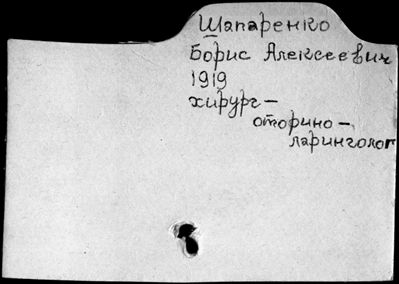 Шапаренко
Борис Алексеевич
1919
хирург-
оторино-
ларинголог